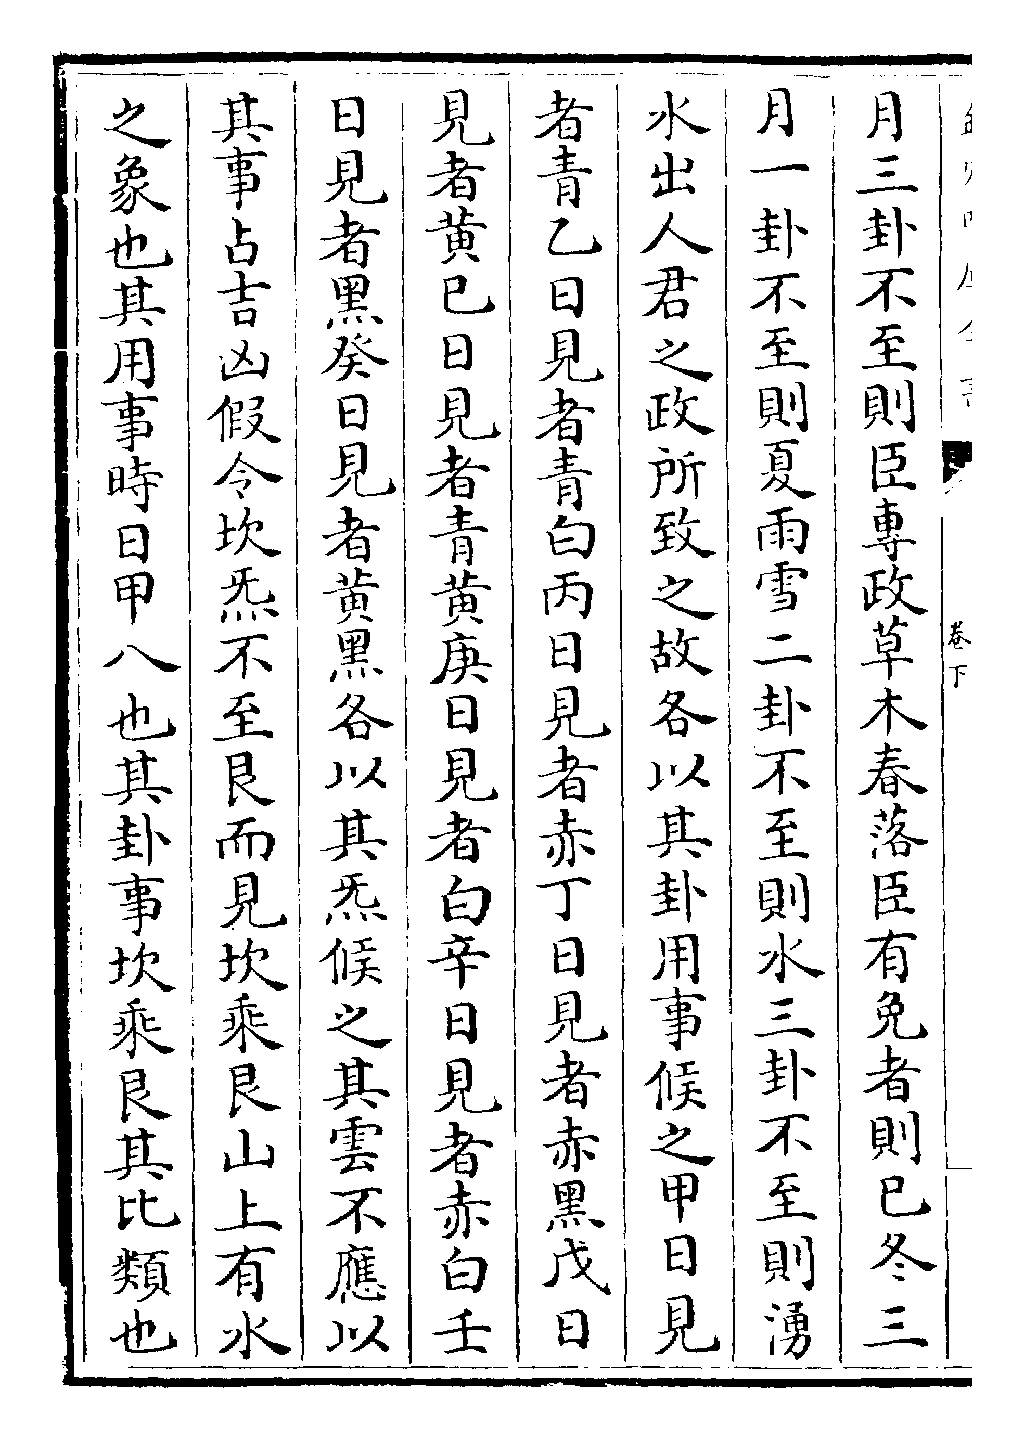 卷下
月三卦不至則臣專政草木春落臣有免者則已冬三
月一卦不至則夏雨雪二卦不至則水三卦不至則湧
水出人君之政所致之故各以其卦用事候之甲日見
者青乙日見者青白丙日見者赤丁日見者赤黑戊日
見者黄已日見者青黄庚日見者白辛日見者赤白壬
日見者黑癸日見者黄黑各以其炁候之其雲不應以
其事占吉凶假令坎炁不至艮而見坎乘艮山上有水
之象也其用事時日甲八也其卦事坎乘艮其比類也